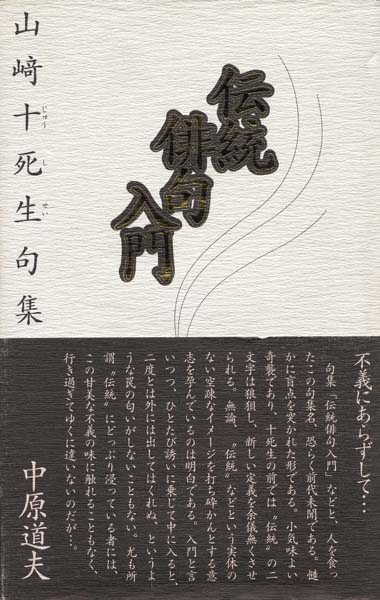 伝統
俳句
入門
山﨑十死生句集
じゅう
し
せい
不義にあらずして…
句集「伝統俳句入門」などと、人を食っ
たこの句集名、恐らく前代未聞である。慥
かに盲点を突かれた形である。小気味よい
奇襲であり、十死生の前では〝伝統〟の二
文字は狼狽し、新しい定義を余儀無くさせ
られる。無論、〝伝統〟などという実体の
ない空疎なイメージを打ち砕かんとする意
志を孕んでいるのは明白である。入門と言
いつつ、ひとたび誘いに乗じて中に入ると、
二度とは外には出してはくれぬ、というよ
うな罠の匂いがしないこともない。尤も所
謂〝伝統〟にどっぷり浸っている者には、
この甘美な不義の味に触れることもなく、
行き過ぎてゆくに違いないのだが…。
中原道夫